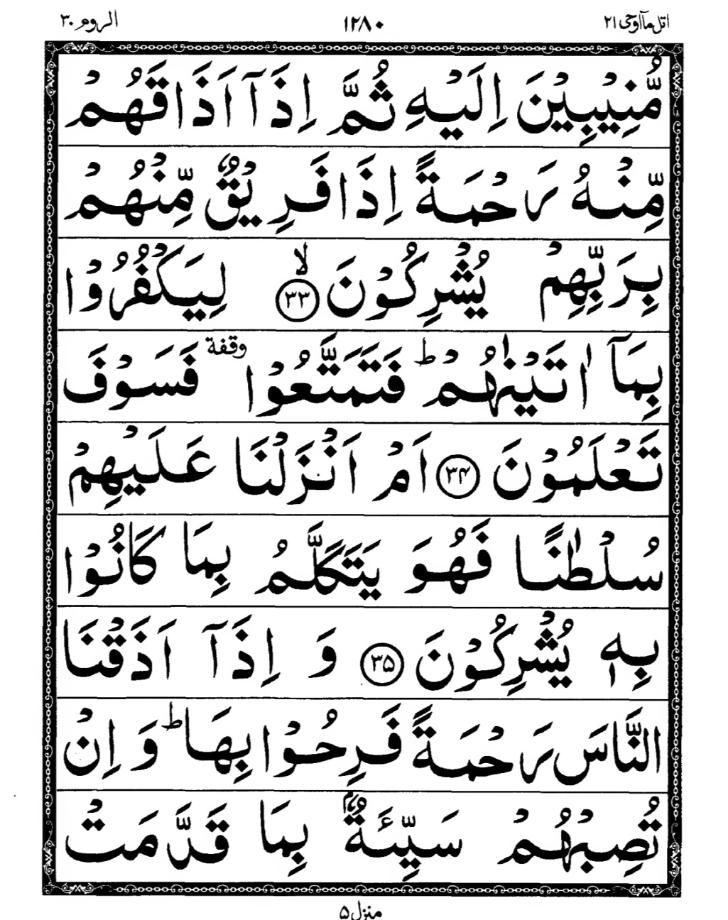 اتل مآ اوحی ۲۱
۱۲۸۰
الروم ۳۰
مُّنِيْبِيْنَ اِلَيْهِ ثُمَّ اِذَاۤ اَذَاقَهُمْ
مِّنْهُ رَحْمَةً اِذَا فَرِيْقٌ مِّنْهُمْ
بِرَبِّهِمْ يُشْرِكُوْنَ ۙ﴿۳۳﴾ لِيَكْفُرُوْا
بِمَاۤ اٰتَيْنٰهُمْ ؕ فَتَمَتَّعُوْا وقفة فَسَوْفَ
تَعْلَمُوْنَ ﴿۳۴﴾ اَمْ اَنْزَلْنَا عَلَيْهِمْ
سُلْطٰنًا فَهُوَ يَتَكَلَّمُ بِمَا كَانُوْا
بِهٖ يُشْرِكُوْنَ ﴿۳۵﴾ وَ اِذَاۤ اَذَقْنَا
النَّاسَ رَحْمَةً فَرِحُوْا بِهَا ؕ وَ اِنْ
تُصِبْهُمْ سَيِّئَةٌۢ بِمَا قَدَّمَتْ
منزل ۵